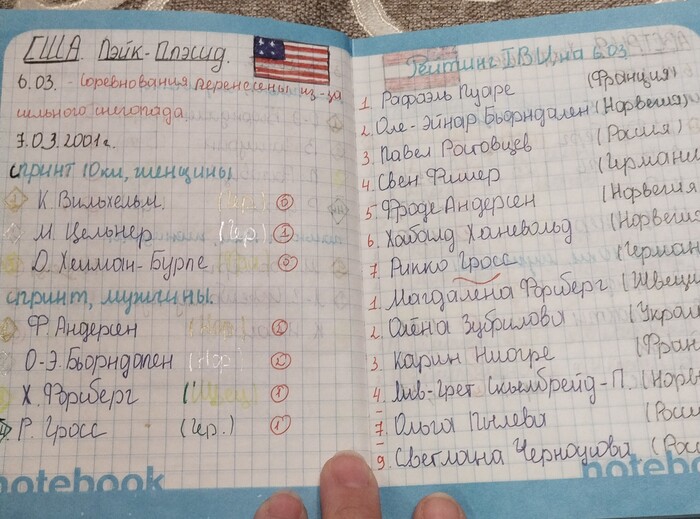 США. Лэйк-Плэсид.
6.03. - Соревнования перенесены из-за
сильного снегопада
7.03.2001г.
спринт 10км, женщины.
1 К. Вильхельм. (Гер.) 0
М. Цельнер (Гер.) 1
Д. Хейман-Бурле 0
спринт, мужчины.
Ф. Андерсен (Нор.)
О-Э. Бьорндален (Нор)
Х. Форнберг (Швец) 1
Р. Гросс (Гер.) 1
notebook
Рейтинг IBU на 6.03
1. Рафаэль Пуаре (Франция)
2. Оле-Эйнар Бьорндален (Норвегия)
3. Павел Ростовцев (Россия)
4. Свен Фишер (Германи
5. Фроде Андерсен (Норвегия
6. Халвард Ханеволд (Норвегия
7. Рикко Гросс (Герман
1. Магдалена Форсберг (Швеци
2. Олена Зубрилова (Украи
3. Карин Ниогре (Фран
4. Лив-Грет Скьелбрейд-П. (Норв
7. Ольга Пылева (Росси
9. Светлана Черноусова (Рос
notebook